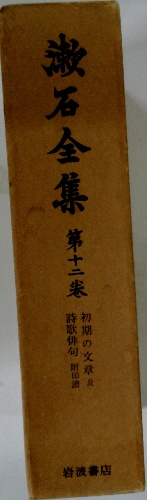 漱石全集
第十二巻
初期の文章及
詩歌俳句 附印譜
岩波書店